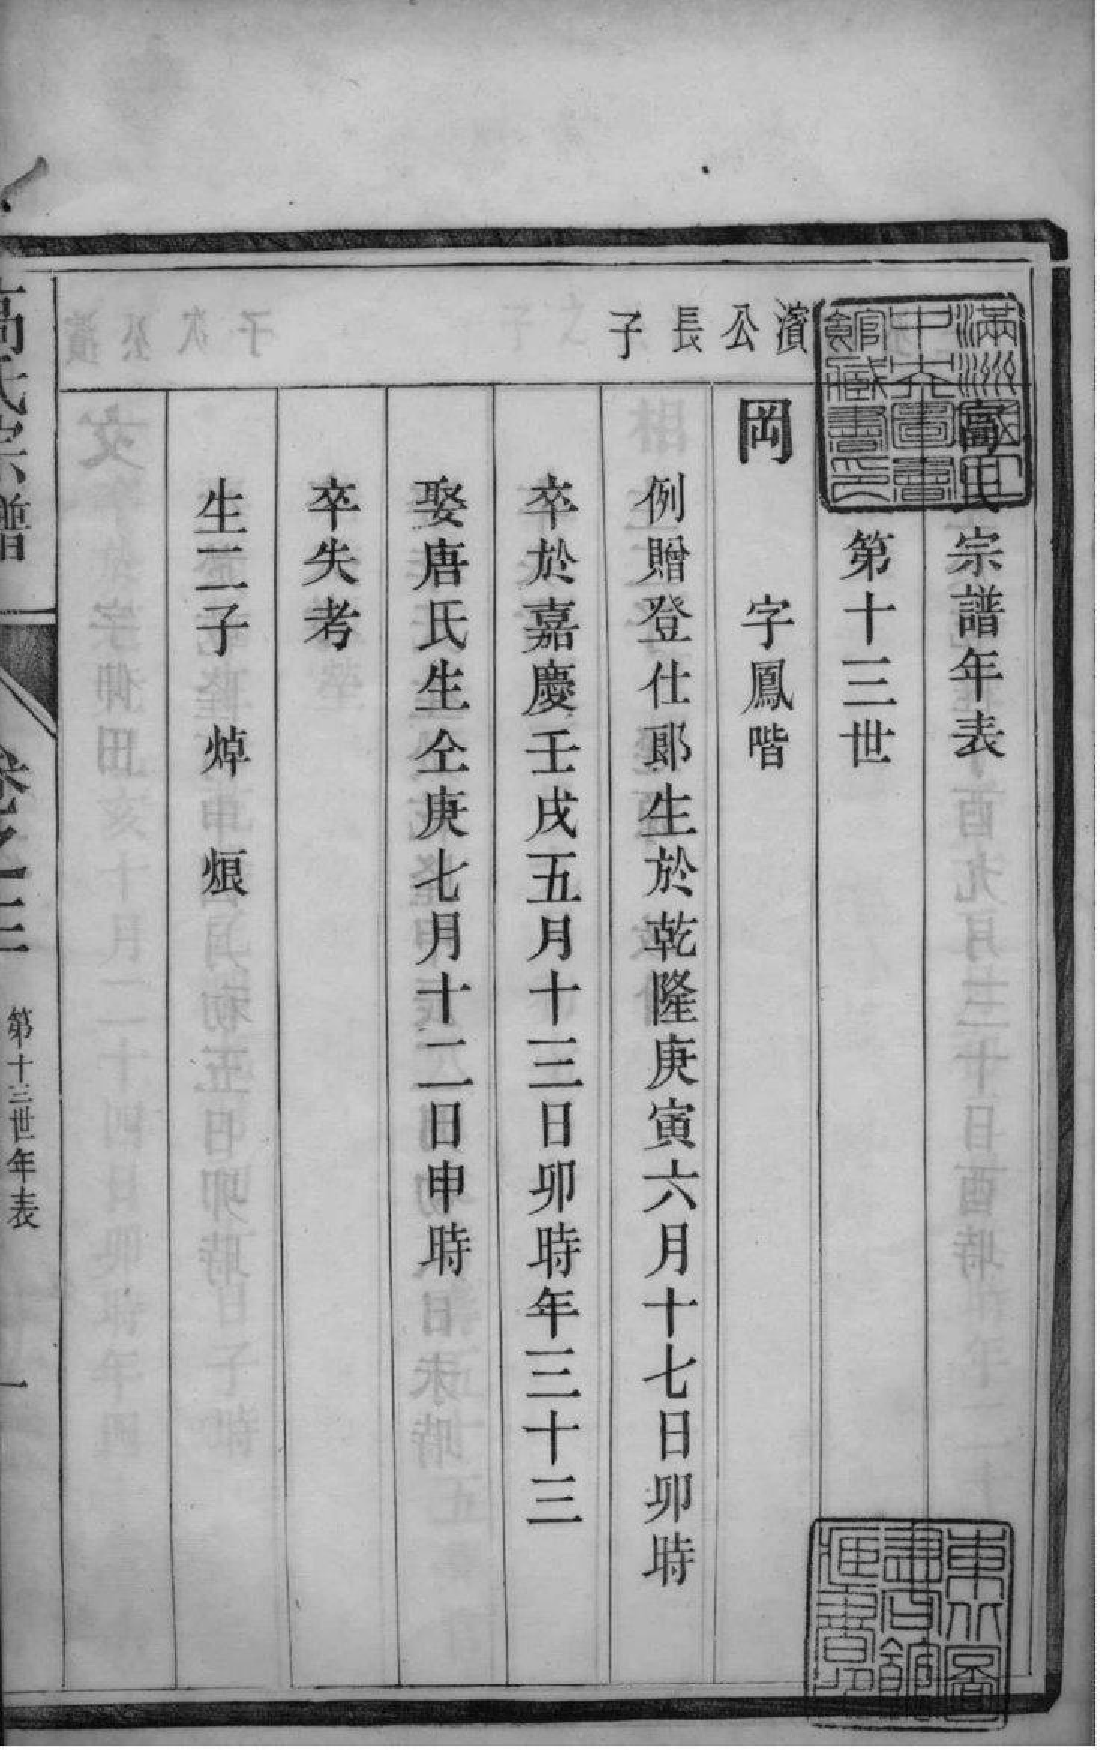 高氏宗譜年表
第十三世
濱公長子
岡　字鳳階
例贈登仕郎生於乾隆庚寅六月十七日卯時
卒於嘉慶壬戌五月十三日卯時年三十三
娶唐氏生仝庚七月十二日申時
卒失考
生二子　焯　烺
高氏宗譜
卷之三
第十三世年表
一
滿洲國立中央圖書館籌備處藏書印